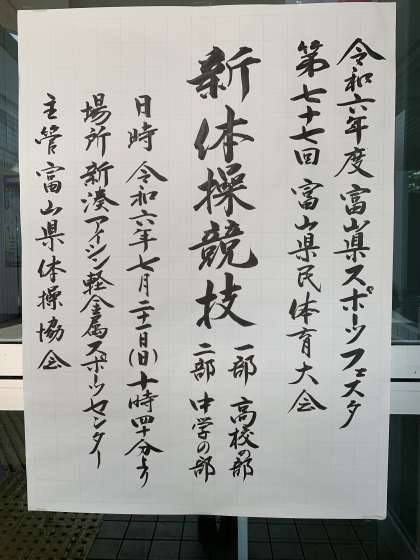 令和六年度富山県スポーツフェスタ
第七十七回富山県民体育大会
新体操競技
一部 高校の部
二部 中学の部
日時 令和六年七月二十一日(日)十時四十分より
場所 新湊アイシン軽金属スポーツセンター
主管 富山県体操協会